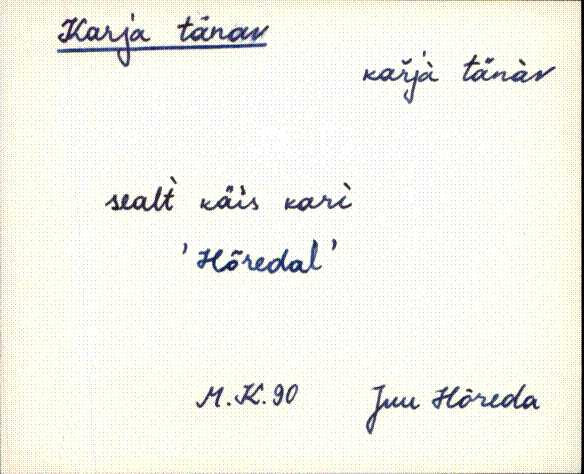 Karja tänav
kaŕjà tänàv
sealt̀ käis kari
'Hõredal'
M.K.90 Juu Hõreda